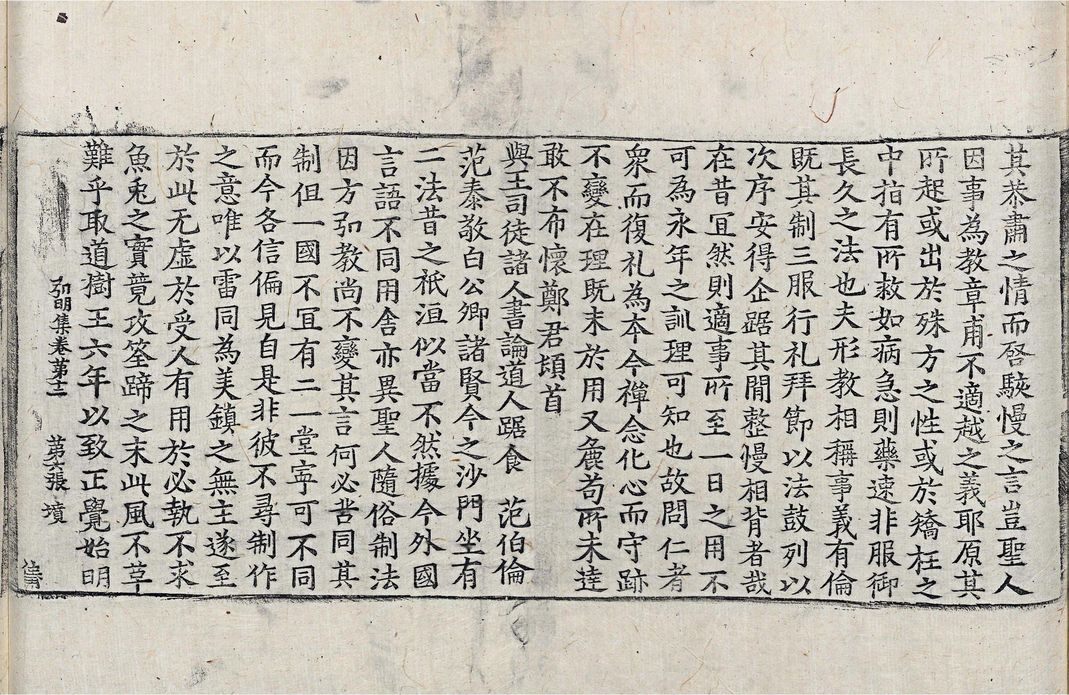 其恭肅之情而啓駮慢之言豈聖人
因事為教章甫不適越之義耶原其
所起或出於殊方之性或於矯枉之
中指有所救如病急則藥速非服御
長久之法也夫形教相稱事義有倫
既其制三服行礼拜節以法鼓列以
次序安得企踞其閒整慢相背者哉
在昔冝然則適事所至一日之用不
可為永年之訓理可知也故問仁者
衆而復礼為本今禪念化心而守跡
不變在理既末於用又麁苟所未達
敢不布懷鄭君頓首
與王司徒諸人書論道人踞食 范伯倫
范泰敬白公卿諸賢今之沙門坐有
二法昔之祇洹似當不然據今外國
言語不同用舍亦異聖人隨俗制法
因方弘教尚不變其言何必苦同其
制但一國不冝有二一堂寧可不同
而今各信偏見自是非彼不尋制作
之意唯以雷同為美鎮之無主遂至
於此无虛於受人有用於必執不求
魚兎之實競攻筌蹄之末此風不革
難乎取道樹王六年以致正覺始明
弘明集卷第十二 第六張 墳